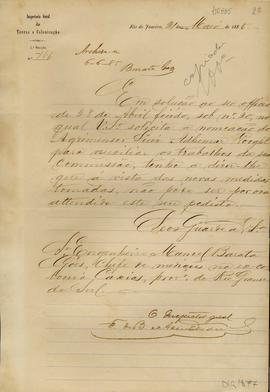 Inspetoria Geral
das
Terras e Colonização
Rio de Janeiro, de Maio de 1885
Archive-se
6-6-85
Barata Goes
Em solução ao seo officio
de 28 de Abril findo, sob nº 20, no
qual Vª Sª solicita a nomeação do
Agrimensor Luiz Adhemar
para auxiliar os trabalhos de sua
Commissão, tenho a dizer-lhe
que á vista das novas medidas
tomadas, não póde ser por ora
attendido este seu pedido.
Deos Guarde a Vª Sª
Sr. Engenheiro Manoel Barata
Goes, Chefe de medições na ex-co
lonia Caxias, provª do Rio Grande
do Sul.
O Inspector geral